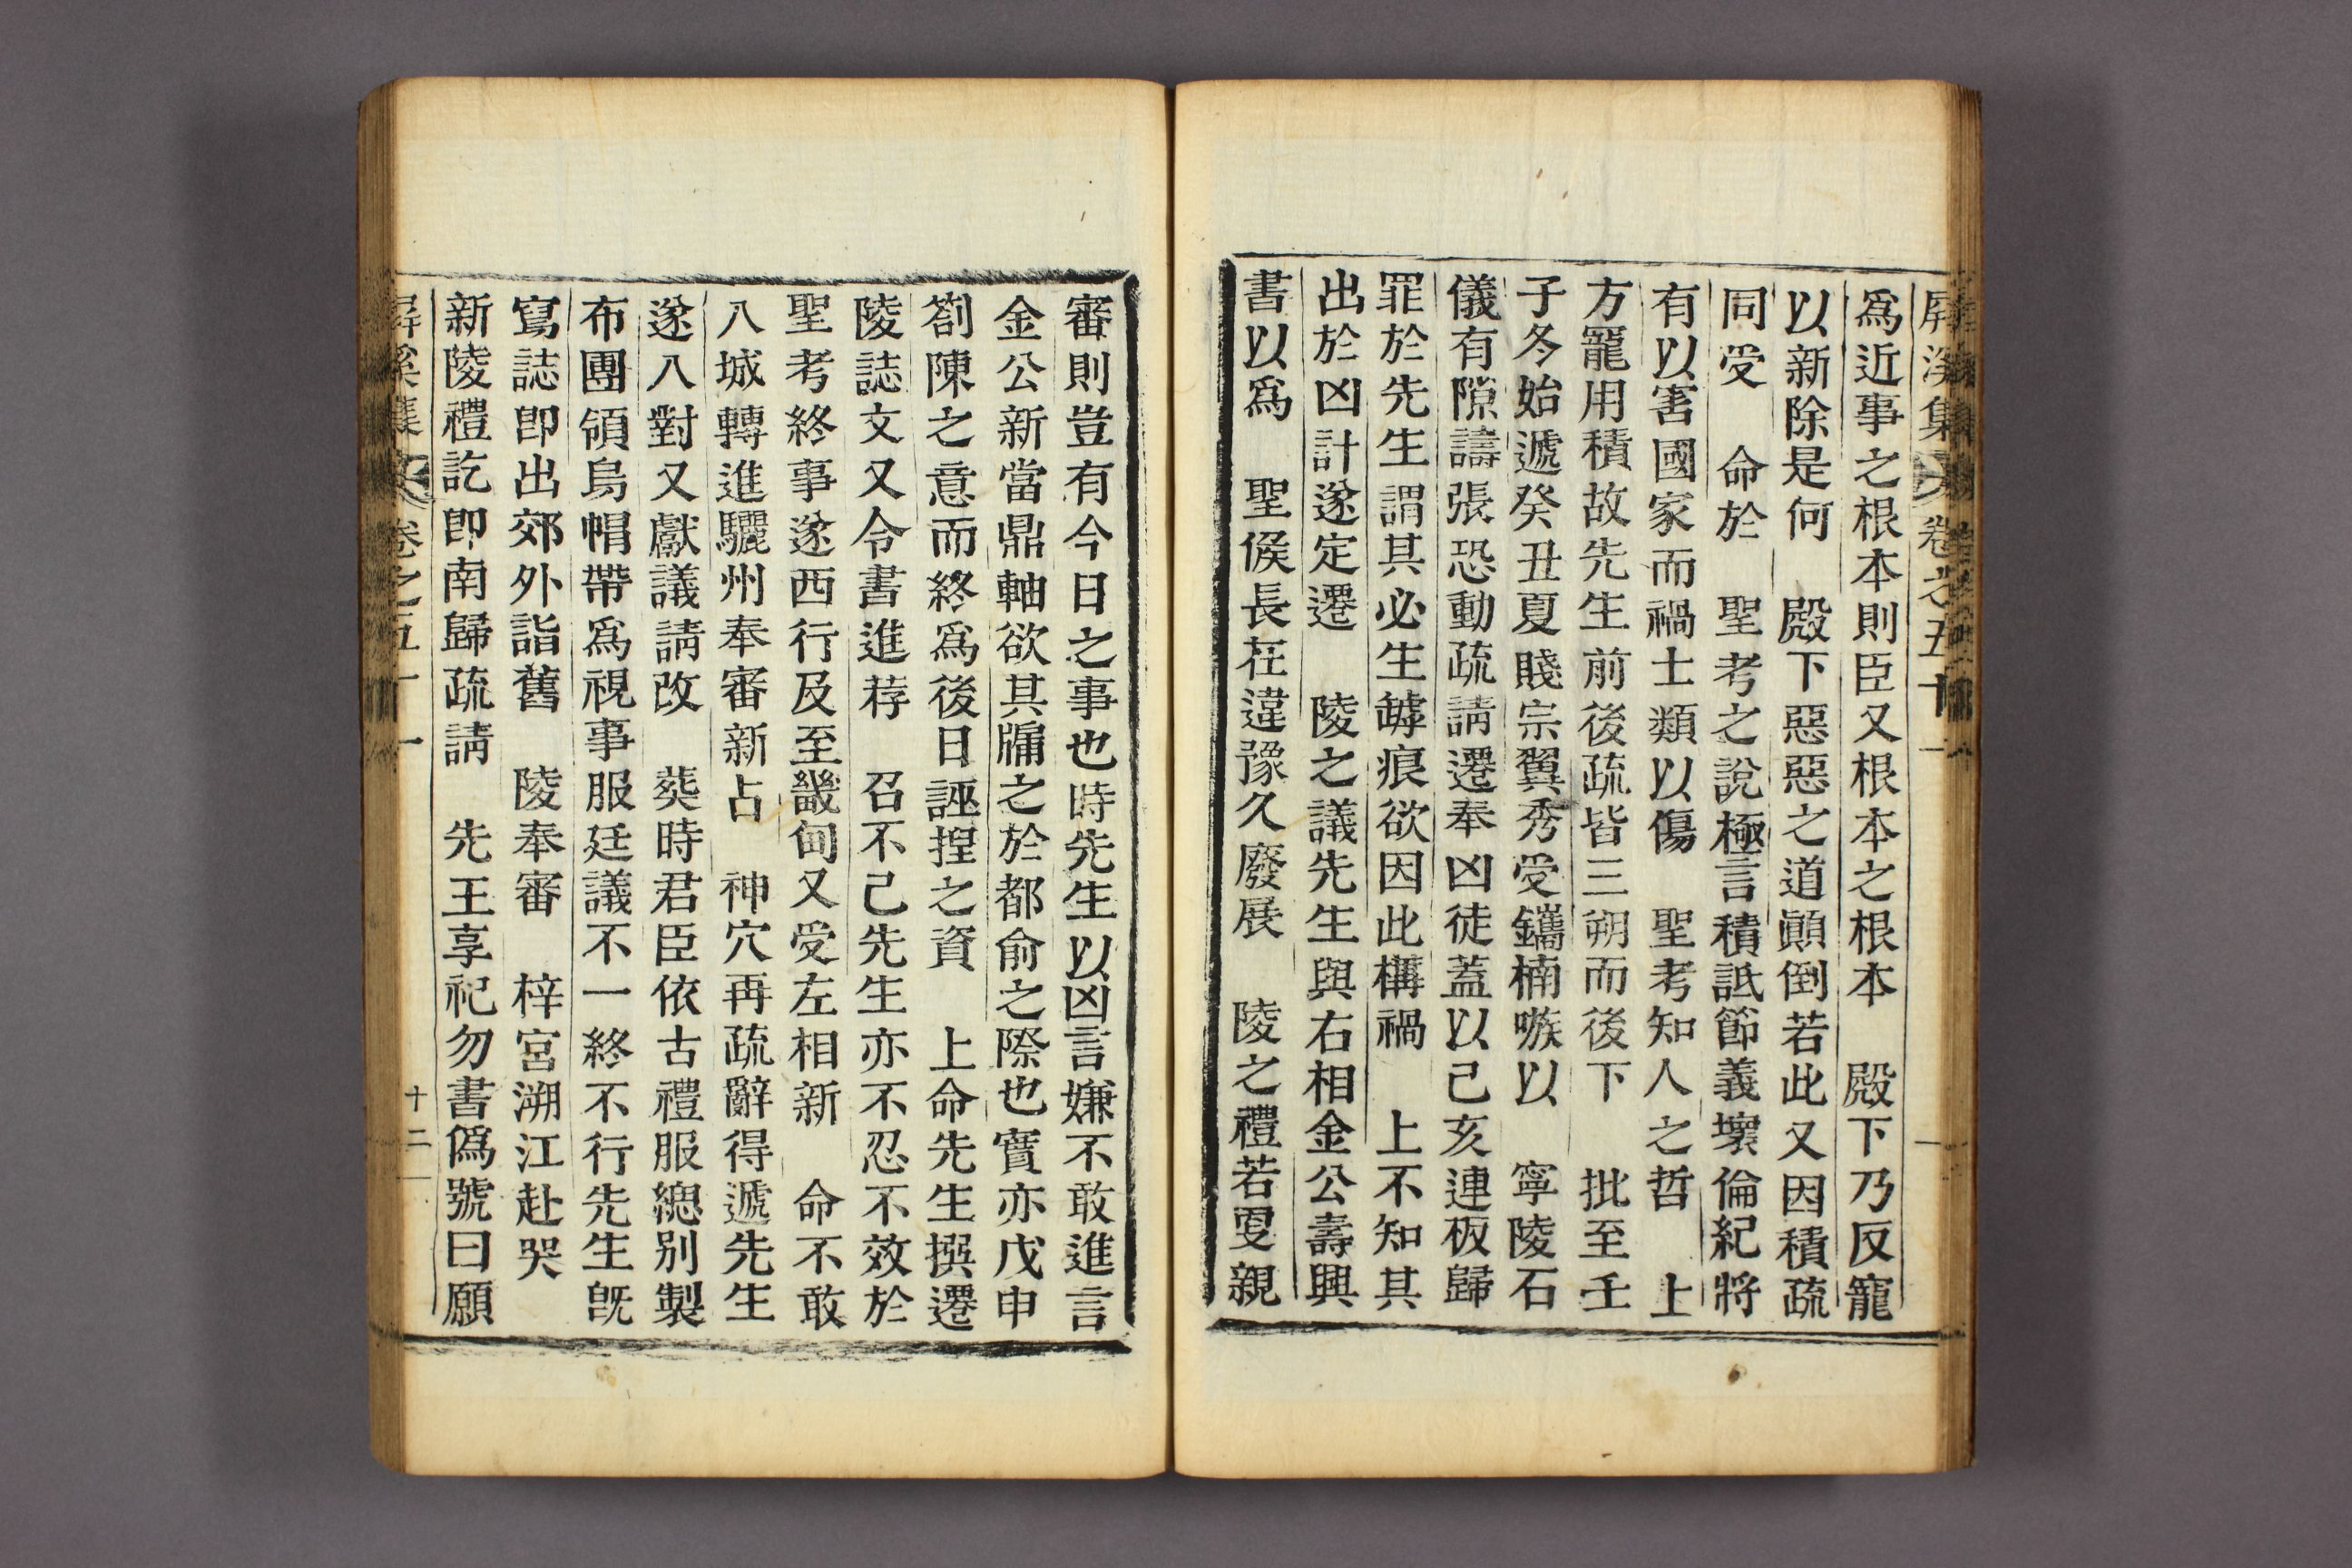 屏溪集 卷之五十一
爲近事之根本則臣又根本之根本 殿下乃反寵
以新除是何 殿下惡惡之道顚倒若此又因積疏
同受 命於 聖考之說極言積詆節義壞倫紀將
有以害國家而禍士類以傷 聖考知人之哲 上
方寵用積故先生前後疏皆三朔而後下 批至壬
子冬始遞癸丑夏賤宗翼秀受鑴楠嗾以 寧陵石
儀有隙譸張恐動疏請遷奉凶徒蓋以己亥連板歸
罪於先生謂其必生罅痕欲因此構禍 上不知其
出於凶計遂定遷 陵之議先生與右相金公壽興
書以爲 聖候長在違豫久廢展 陵之禮若更親
審則豈有今日之事也時先生以凶言嫌不敢進言
金公新當鼎軸欲其牖之於都俞之際也實亦戊申
箚陳之意而終爲後日誣揑之資 上命先生撰遷
陵誌文又令書進荐 召不已先生亦不忍不效於
聖考終事遂西行及至畿甸又受左相新 命不敢
入城轉進驪州奉審新占 神穴再疏辭得遞先生
遂入對又獻議請改 葬時君臣依古禮服緦別製
布團領烏帽帶爲視事服廷議不一終不行先生旣
寫誌卽出郊外詣舊 陵奉審 梓宮溯江赴哭
新陵禮訖卽南歸疏請 先王享祀勿書僞號曰願
屏溪集 卷之五十一 十二